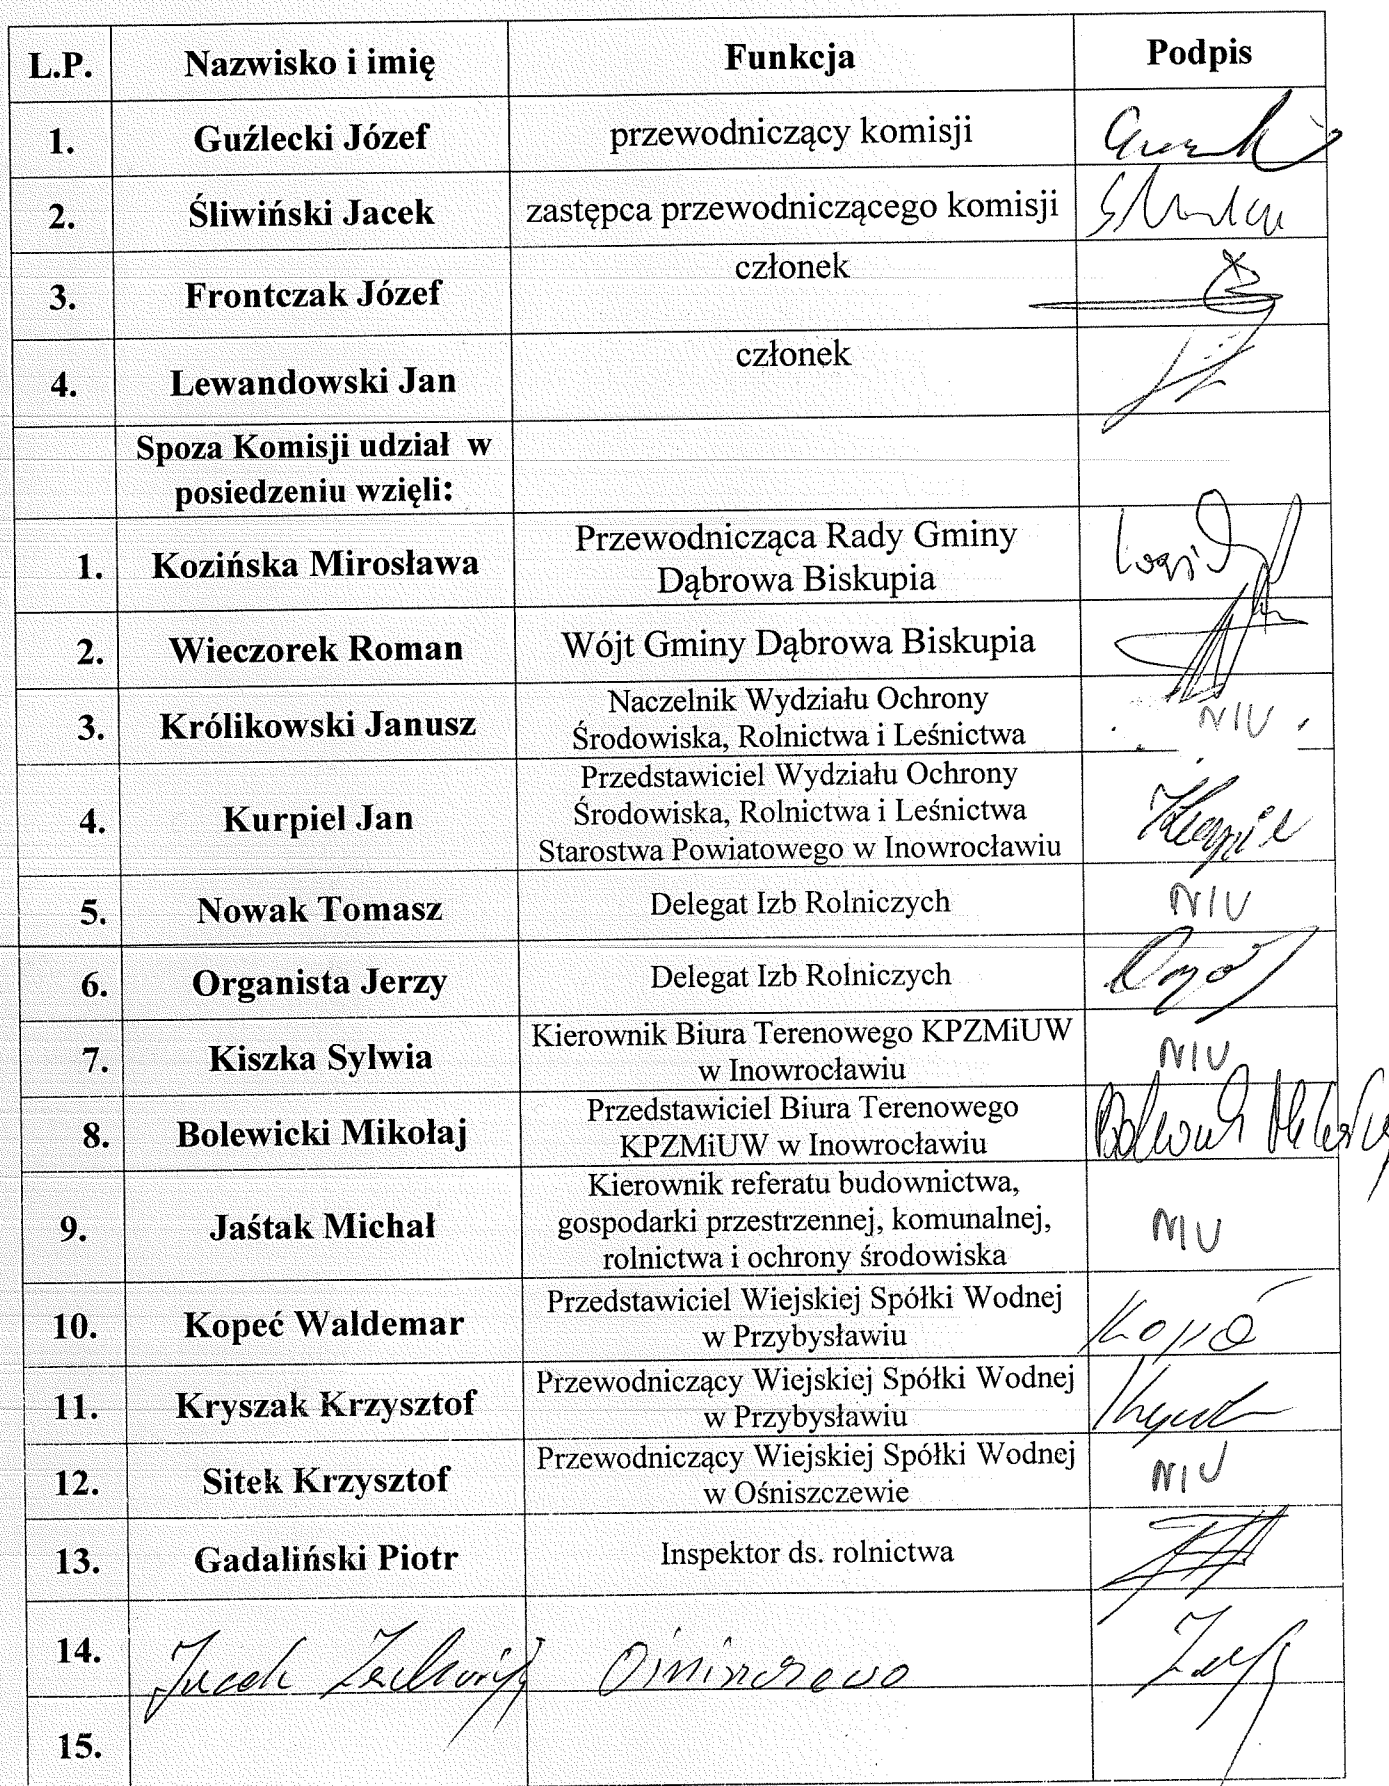 L.P. Nazwisko i imię Funkcja Podpis
1. Guźlecki Józef przewodniczący komisji
2. Śliwiński Jacek zastępca przewodniczącego komisji
3. Frontczak Józef członek
4. Lewandowski Jan członek
Spoza Komisji udział w
posiedzeniu wzięli:
1. Kozińska Mirosława Przewodnicząca Rady Gminy
Dąbrowa Biskupia
2. Wieczorek Roman Wójt Gminy Dąbrowa Biskupia
3. Królikowski Janusz Naczelnik Wydziału Ochrony
Środowiska, Rolnictwa i Leśnictwa NIU
4. Kurpiel Jan Przedstawiciel Wydziału Ochrony
Środowiska, Rolnictwa i Leśnictwa
Starostwa Powiatowego w Inowrocławiu
5. Nowak Tomasz Delegat Izb Rolniczych NIU
6. Organista Jerzy Delegat Izb Rolniczych
7. Kiszka Sylwia Kierownik Biura Terenowego KPZMiUW
w Inowrocławiu NIU
8. Bolewicki Mikołaj Przedstawiciel Biura Terenowego
KPZMiUW w Inowrocławiu
9. Jaśtak Michał Kierownik referatu budownictwa,
gospodarki przestrzennej, komunalnej,
rolnictwa i ochrony środowiska NIU
10. Kopeć Waldemar Przedstawiciel Wiejskiej Spółki Wodnej
w Przybysławiu
11. Kryszak Krzysztof Przewodniczący Wiejskiej Spółki Wodnej
w Przybysławiu
12. Sitek Krzysztof Przewodniczący Wiejskiej Spółki Wodnej
w Ośniszczewie NIU
13. Gadaliński Piotr Inspektor ds. rolnictwa
14. Jacek
15.